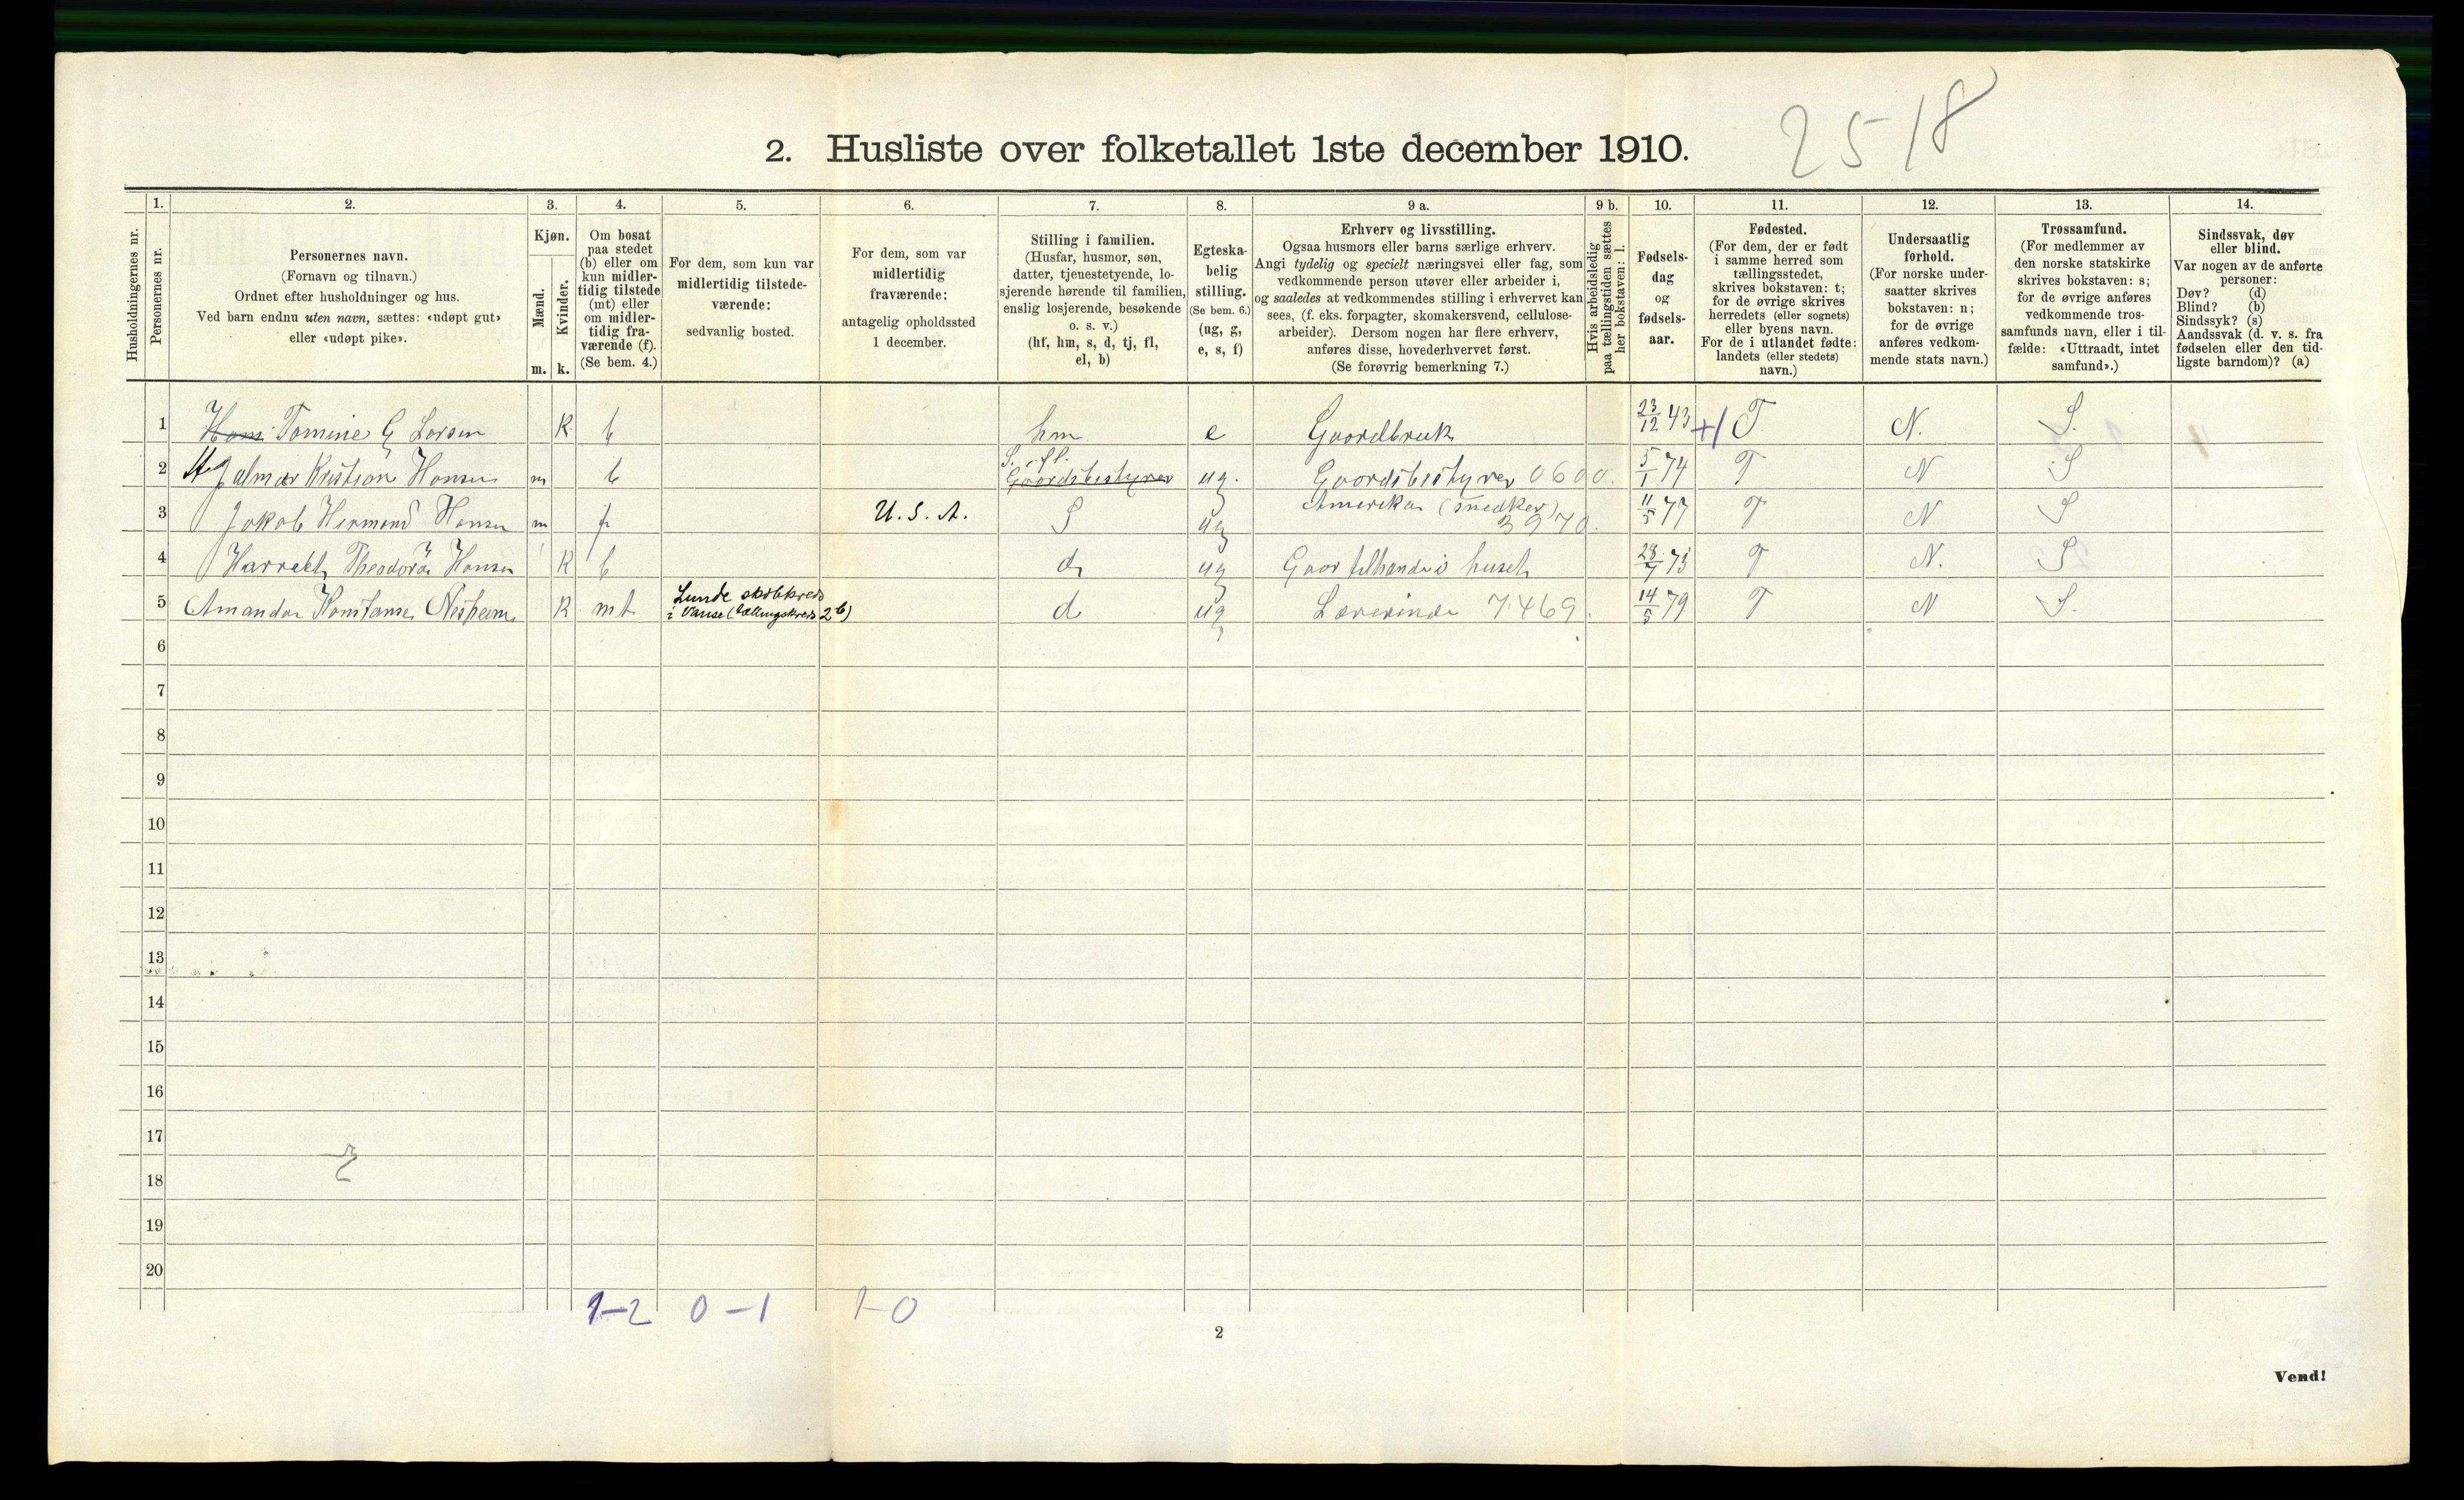 2518
2. Husliste over folketallet 1ste december 1910.
Husholdningernes nr.
1.
Personernes nr.
2.
Personernes navn.
(Fornavn og tilnavn.)
Ordnet efter husholdninger og hus.
Ved barn endnu uten navn, sættes: «udøpt gut»
eller «udøpt pike».
3.
Kjøn.
Mænd.
Kvinder.
m. k.
4.
Om bosat
paa stedet
(b) eller om
kun midler-
tidig tilstede
(mt) eller
om midler-
tidig fra-
værende (f).
(Se bem. 4.)
5.
For dem, som kun var
midlertidig tilstede-
værende:
sedvanlig bosted.
6.
For dem, som var
midlertidig
fraværende:
antagelig opholdssted
1 december.
7.
Stilling i familien.
(Husfar, husmor, søn,
datter, tjenestetyende, lo-
sjerende hørende til familien,
enslig losjerende, besøkende
o. s. v.)
(hf, hm, s, d, tj, fl,
el, b)
8.
Egteska-
belig
stilling.
(Se bem. 6.)
(ug, g,
e, s, f)
9 a.
Erhverv og livsstilling.
Ogsaa husmors eller barns særlige erhverv.
Angi tydelig og specielt næringsvei eller fag, som
vedkommende person utøver eller arbeider i,
og saaledes at vedkommendes stilling i erhvervet kan
sees, (f. eks. forpagter, skomakersvend, cellulose-
arbeider). Dersom nogen har flere erhverv,
anføres disse, hovederhvervet først.
(Se forøvrig bemerkning 7.)
9 b.
Hvis arbeidsledig
paa tællingstiden sættes
her bokstaven: l.
10.
Fødsels-
dag
og
fødsels-
aar.
11.
Fødested.
(For dem, der er født
i samme herred som
tællingsstedet,
skrives bokstaven: t;
for de øvrige skrives
herredets (eller sognets)
eller byens navn.
For de i utlandet fødte:
landets (eller stedets)
navn.)
12.
Undersaatlig
forhold.
(For norske under-
saatter skrives
bokstaven: n;
for de øvrige
anføres vedkom-
mende stats navn.)
13.
Trossamfund.
(For medlemmer av
den norske statskirke
skrives bokstaven: s;
for de øvrige anføres
vedkommende tros-
samfunds navn, eller i til-
fælde: «Uttraadt, intet
samfund».)
14.
Sindssvak, døv
eller blind.
Var nogen av de anførte
personer:
Døv? (d)
Blind? (b)
Sindssyk? (s)
Aandssvak (d. v. s. fra
fødselen eller den tid-
ligste barndom)? (a)
1 Hans Tomine G Larsen K b hm e Gaardbruk 23/12 43 +1 T N. S.
2 Hjalmar Kristian Hansen m b S. fl. Gaardsbestyrer ug. Gaardsbestyrer 0600. 5/1 74 T N S
3 Jakob Hermand Hansen m f U. S. A. S ug Amerika (snedker) 3970. 11/5 77 T N S
4 Theodora Hansen K b d ug Gaar tilhande i huset 28/7 73 T N. S
5 Amanda Konstanse K mt Lunde skolekreds
i Vanse (tællingskreds 2b) d ug Lærerinde 7469. 14/5 79 T N S.
6
7
8
9
10
11
12
13
14
15
16
17
18
19
20
1-2 0-1 1-0
2
Vend!